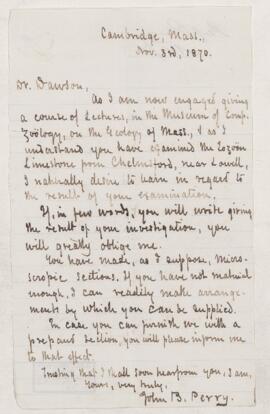 Cambridge, Mass.,
Nov. 3rd, 1870.
Dr. Dawson,
As I am now engaged giving
a course of Lectures, in the Museum of Comp.
Zoölogy, on the Geology of Mass., & as I
understand you have examined the Eozoön
Limestone from Chelmsford, near Lowell,
I naturally desire to learn in regard to
the result of your examination.
If, in few words, you will write giving
the result of your investigation, you
will greatly oblige me.
You have made, as I suppose, Micro-
scropic sections. If you have not material
enough, I can readily make arrange-
ment by which you can be supplied.
In case you can furnish me with a
prepared section, you will please inform me
to that effect.
Trusting that I shall soon hear from you, I am,
Yours, very truly,
John B. Perry.